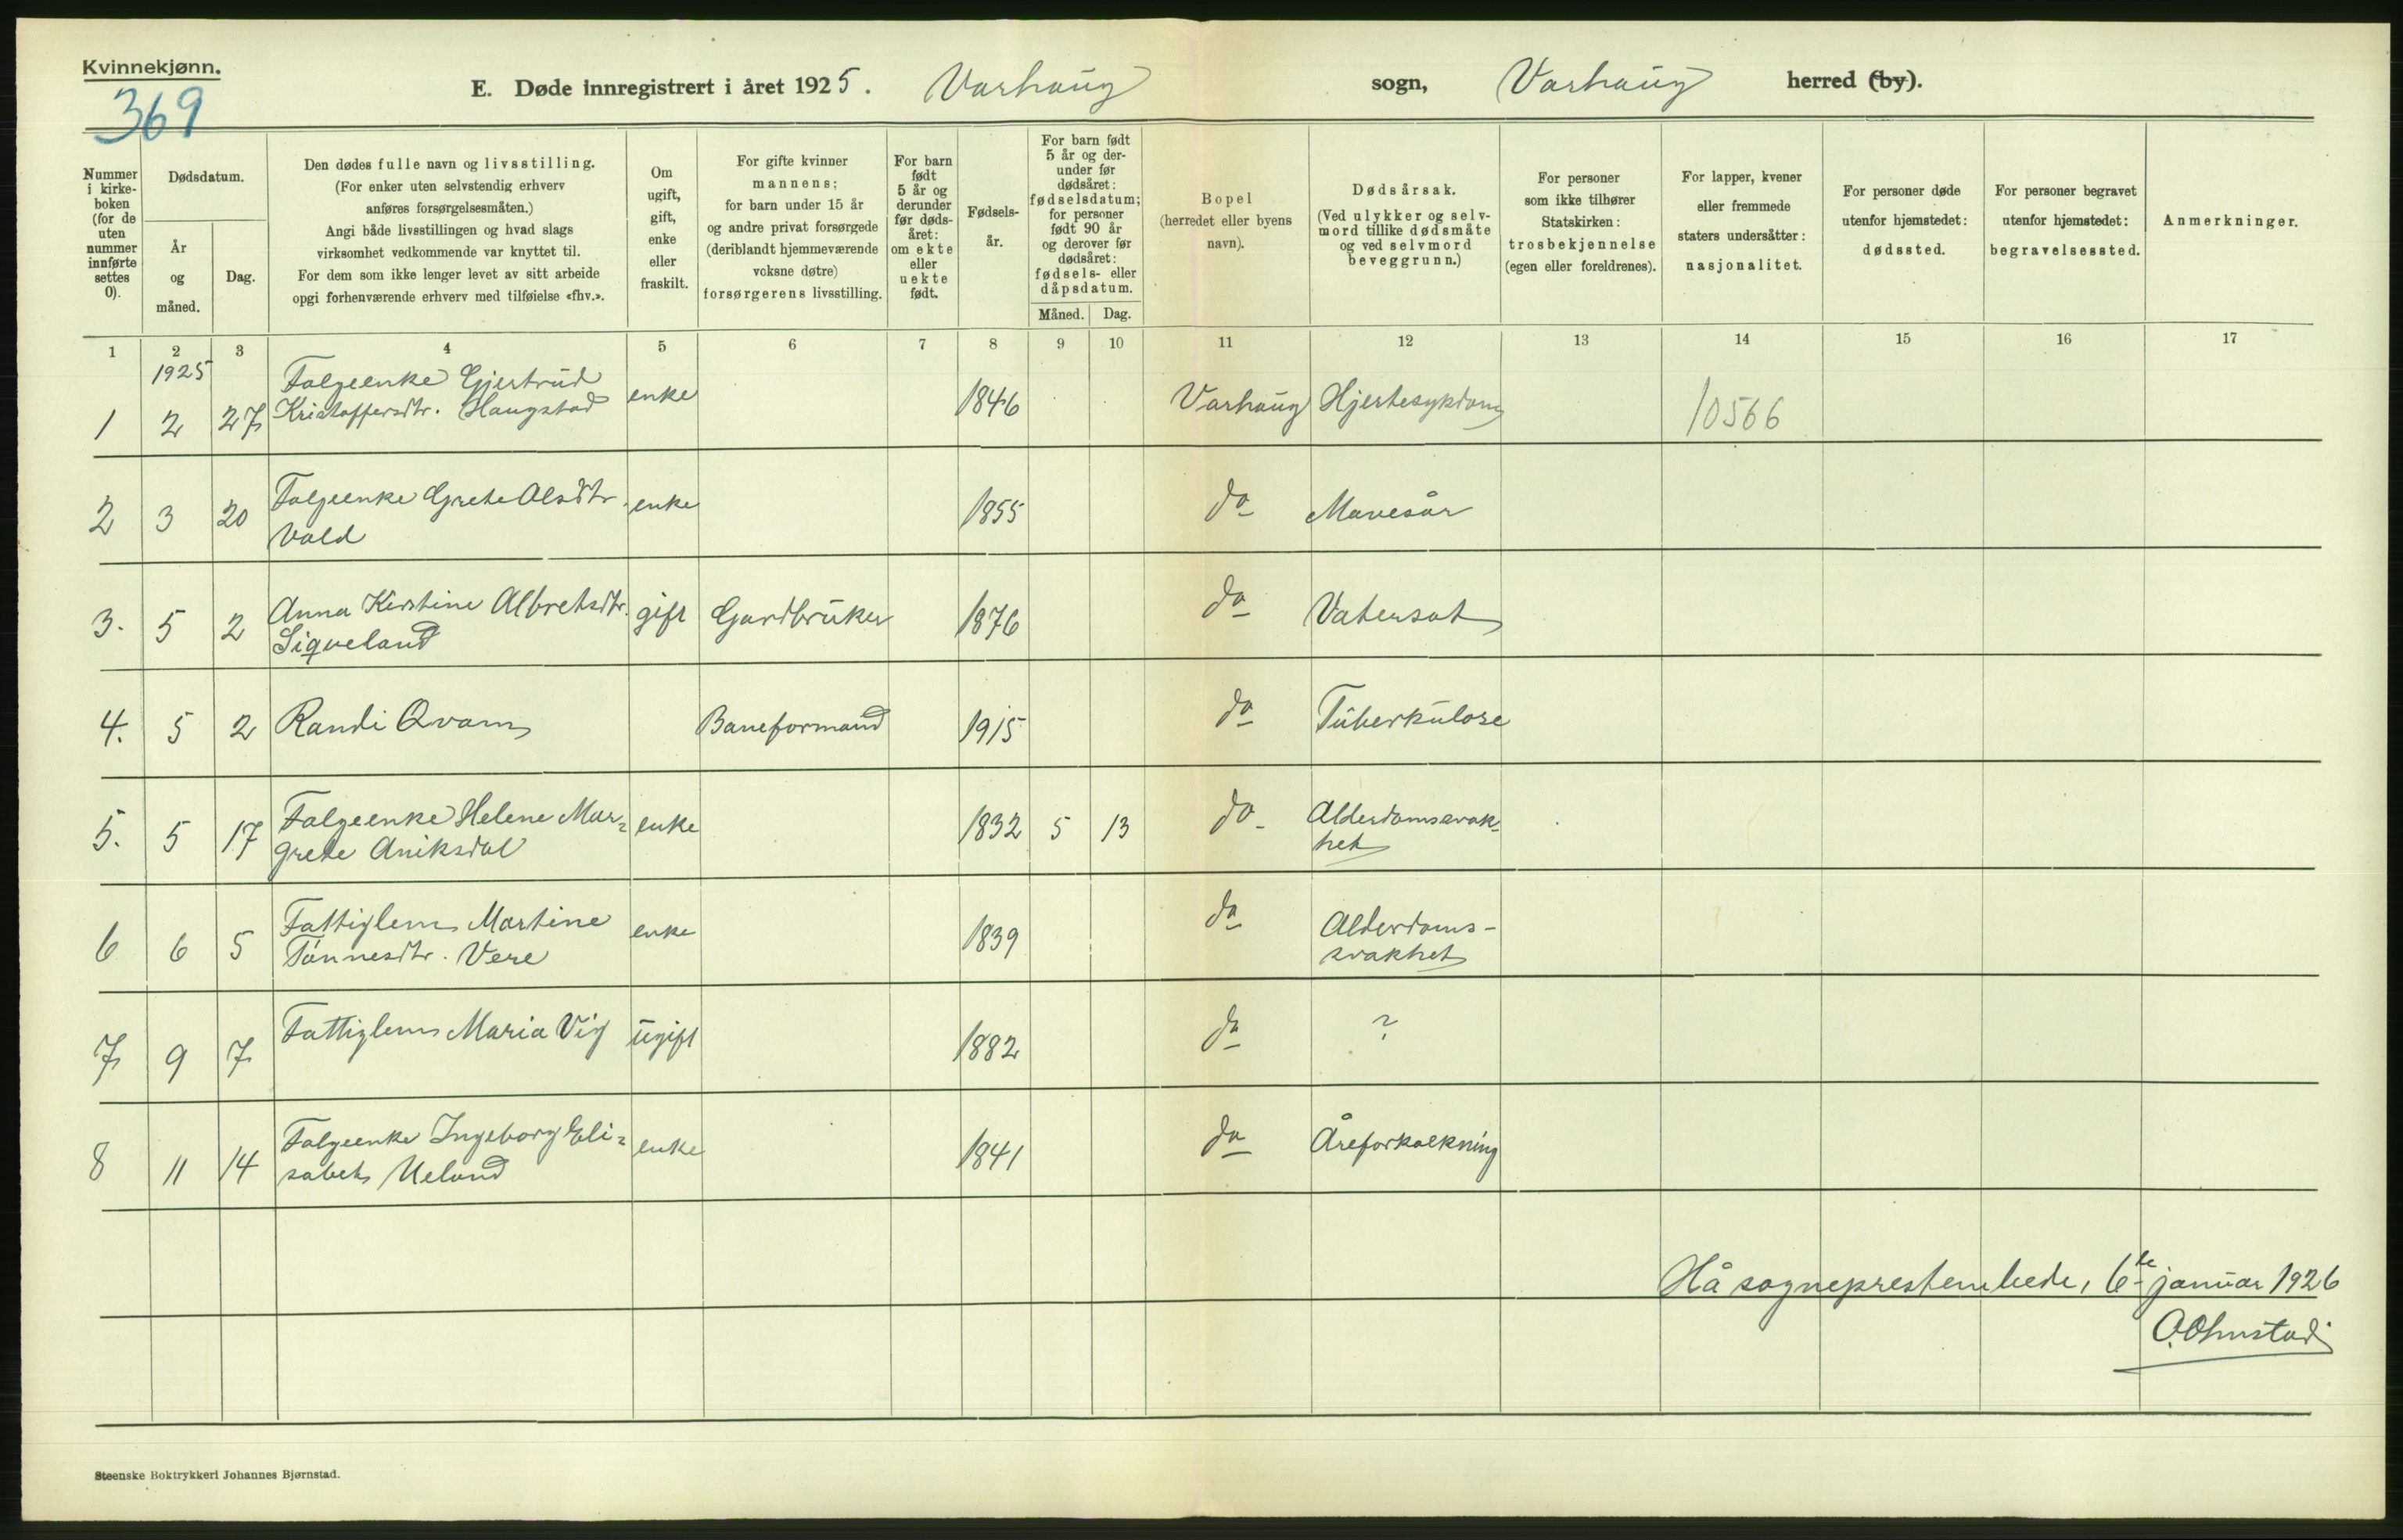 Kvinnekjønn.
369
E. Døde innregistrert i året 1925. Varhaug sogn, Varhaug herred (by).
Nummer i kirke- boken (for de uten nummer innførte settes 0).
Dødsdatum.
År og måned.
Dag.
Den dødes fulle navn og livsstilling.
(For enker uten selvstendig erhverv
anføres forsørgelsesmåten.)
Angi både livsstillingen og hvad slags
virksomhet vedkommende var knyttet til.
For dem som ikke lenger levet av sitt arbeide
opgi forhenværende erhverv med tilføielse «fhv.».
Om ugift, gift, enke eller fraskilt.
For gifte kvinner
mannens;
for barn under 15 år
og andre privat forsørgede
(deriblandt hjemmeværende
voksne døtre)
forsørgerens livsstilling.
For barn født 5 år og derunder før døds- året: om ekte eller uekte født.
Fødsels- år.
For barn født
5 år og der-
under før
dødsåret:
fødselsdatum;
for personer
født 90 år
og derover før
dødsåret:
fødsels- eller
dåpsdatum.
Måned. Dag.
Bopel
(herredet eller byens
navn).
Dødsårsak.
(Ved ulykker og selv-
mord tillike dødsmåte
og ved selvmord
beveggrunn.)
For personer
som ikke tilhører
Statskirken:
trosbekjennelse
(egen eller foreldrenes).
For lapper, kvener
eller fremmede
staters undersåtter:
nasjonalitet.
For personer døde
utenfor hjemstedet:
dødssted.
For personer begravet
utenfor hjemstedet:
begravelsessted.
Anmerkninger.
1 2 3 4 5 6 7 8 9 10 11 12 13 14 15 16 17
1925
Folgeenke Gjertrud
1 2 27 Kristoffersdtr. Haugstad enke 1846 Varhaug Hjertesykdom 10566
2 3 20 Folgeenke Grete Olsdtr. enke 1855 do Mavesår
Vold
3. 5 2 Anna Kirstine Albretsdtr. gift Gardbruker 1876 do Vatersot
Siqveland
4. 5 2 Randi Qvam Baneformand 1915 do Tuberkulose
5. 5 17 Folgeenke Helene Mar= enke 1832 5 13 do Alderdomssvak-
grete Aniksdal het
6 6 5 Fattiglem Martine enke 1839 do Alderdoms-
Tønnesdtr. Vere svakhet
7 9 7 Fattiglem Maria Vig ugift 1882 do ?
8 11 14 Folgeenke Ingeborg Eli= enke 1841 do Åreforkalkning
sabet Ueland
Hå sogneprestembede, 6te januar 1926
O. Olmstad
Steenske Boktrykkeri Johannes Bjørnstad.